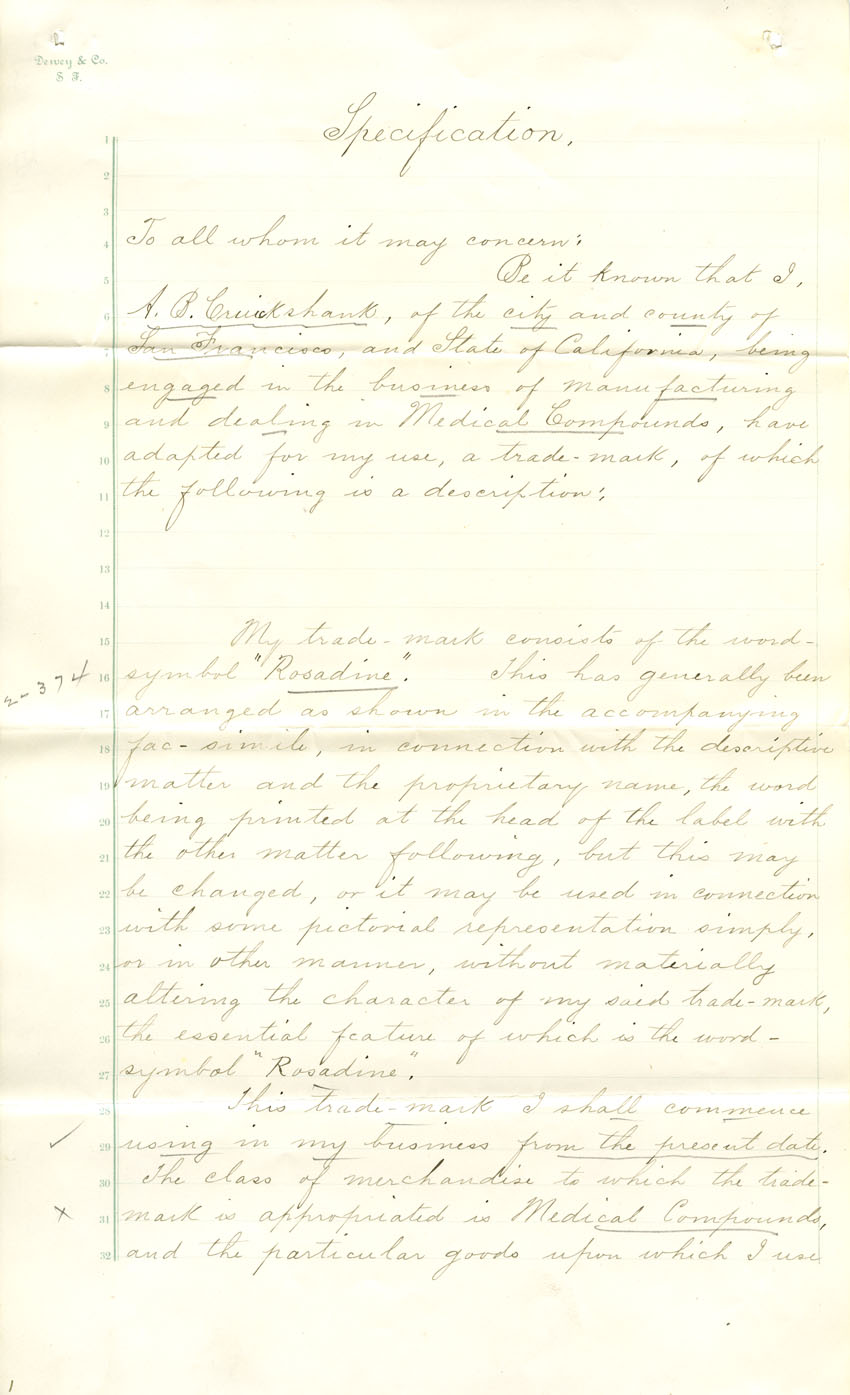 2
2
Dewey & Co.
S F.
Specification.
1
2
3
4 To all whom it may concern:
5 Be it known that I,
6 A. B. Cruickshank, of the city and county of
7 San Francisco, and State of California, being
8 engaged in the business of manufacturing
9 and dealing in Medical Compounds, have
10 adapted for my use, a trade-mark, of which
11 the following is a description:
12
13
14
15 My trade-mark consists of the word-
16 symbol "Rosadine". This has generally been
2-374
17 arranged as shown in the accompanying
18 fac-simile, in connection with the descriptive
19 matter and the proprietary name, the word
20 being printed at the head of the label with
21 the other matter following, but this may
22 be changed, or it may be used in connection
23 with some pictorial representation simply,
24 or in other manner, without materially
25 altering the character of my said trade-mark,
26 the essential feature of which is the word-
27 symbol "Rosadine".
28 This trade-mark I shall commence
29 using in my business from the present date.
30 The class of merchandise to which the trade-
31 mark is appropriated is Medical Compounds,
32 and the particular goods upon which I use
1